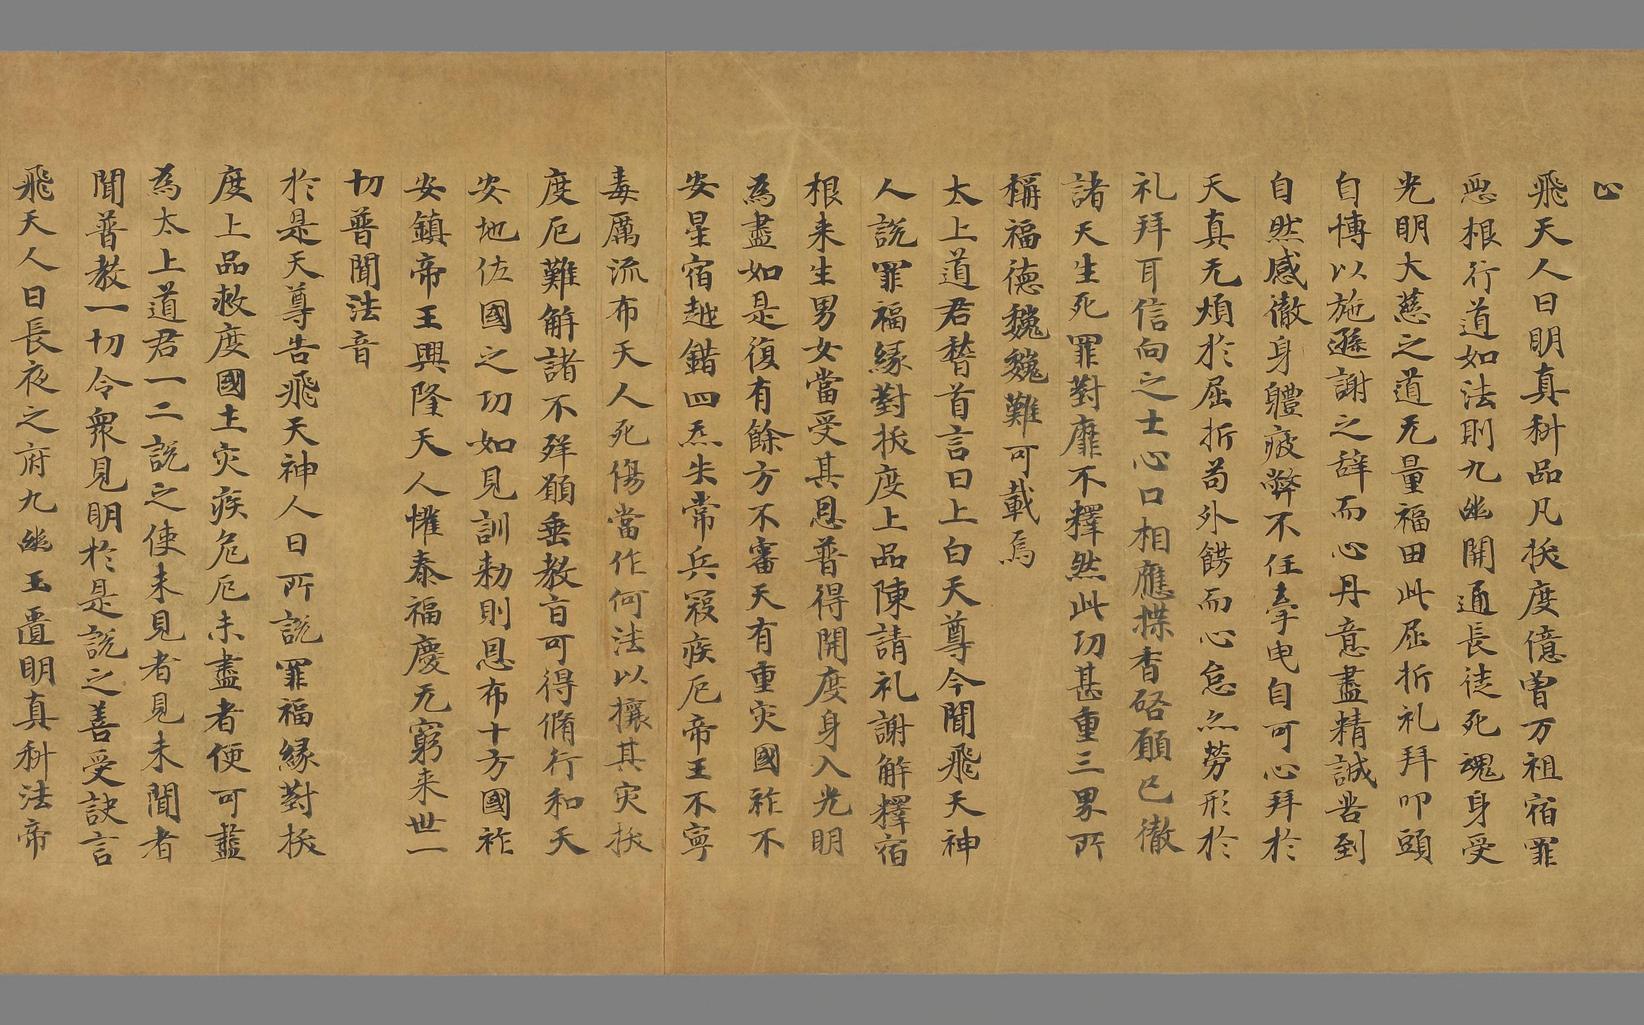 止
飛天人曰明真科品凡拔度億曽万祖宿罪
惡根行道如法則九幽開通長徒死魂身受
光明大慈之道无量福田此屈折礼拜叩頭
自慱以施遜謝之辝而心丹意盡精誠苦到
自然感徹身軆疲弊不任牽曳自可心拜於
天真无煩於屈折苟外餝而心怠亦勞形於
礼拜耳信向之士心口相應揲香啓願已徹
諸天生死罪對靡不釋然此功甚重三界所
稱福德巍巍難可載焉
太上道君稽首言曰上白天尊今聞飛天神
人説罪福縁對拔度上品陳請礼謝解釋宿
根未生男女當受其恩普得開度身入光明
為盡如是復有餘方不審天有重灾國祚不
安星宿越錯四炁失常兵寇疾厄帝王不寧
毒厲流布天人死傷當作何法以攘其灾拔
度厄難解諸不祥願垂教㫖可得脩行和天
安地佐國之功如見訓勑則恩布十方國祚
安鎮帝王興隆天人懽泰福慶无窮来世一
切普聞法音
於是天尊告飛天神人曰所説罪福縁對拔
度上品救度國土灾疾危厄未盡者便可盡
為太上道君一二説之使未見者見未聞者
聞普教一切令衆見明於是説之善受訣言
飛天人曰長夜之府九幽玉匱明真科法帝